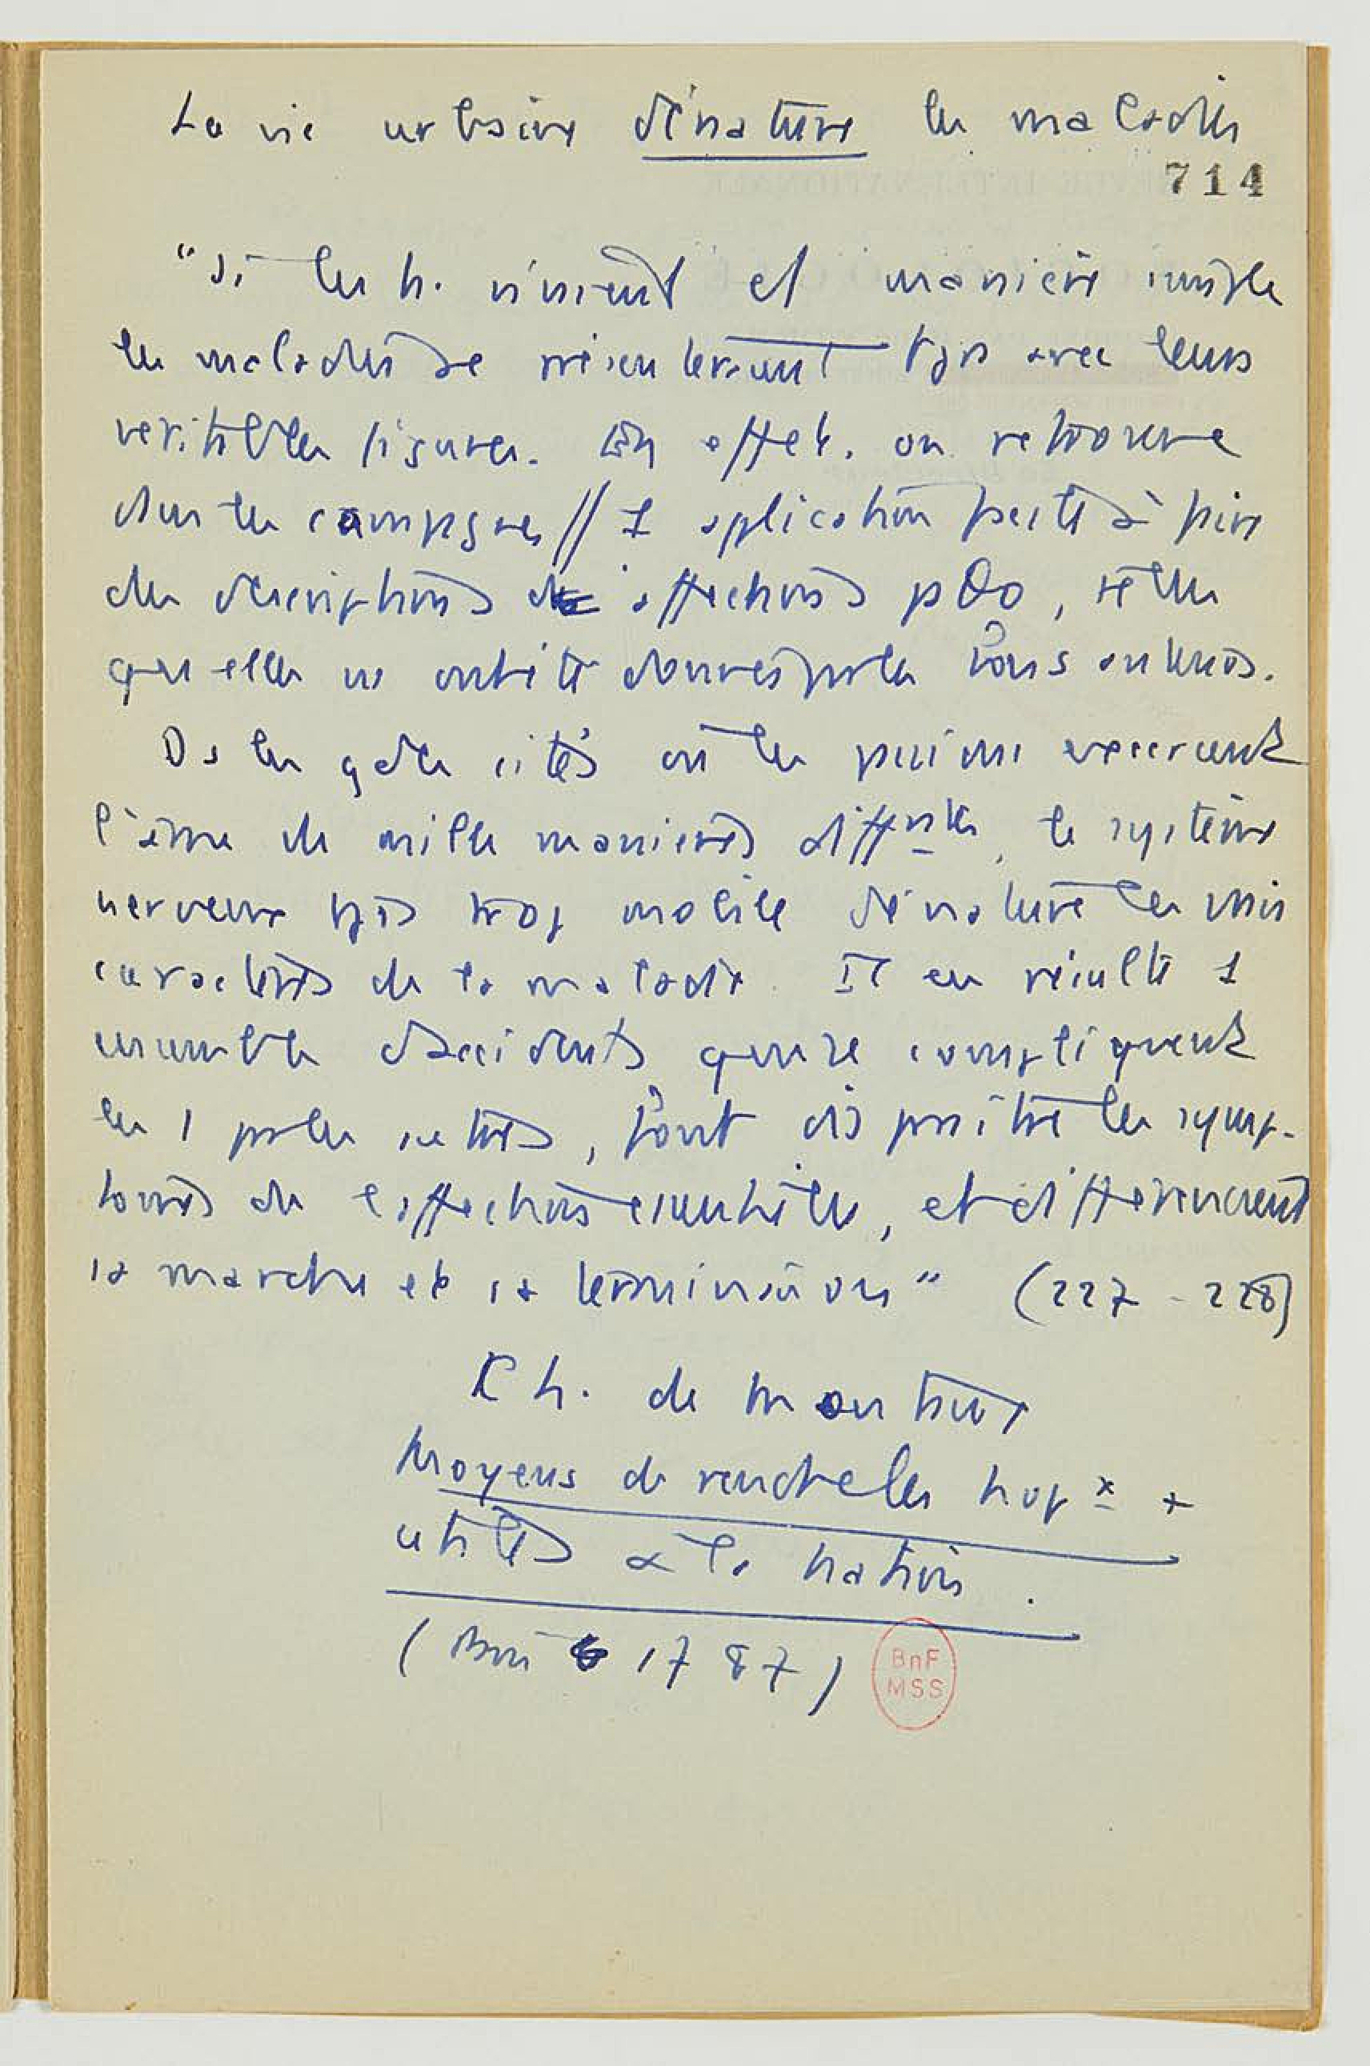 La vie urbaine dénature les maladies
714
"Si les h. vivaient d' manière simple
les maladies se présenteraient tjrs avec leurs
véritables figures. En effet, on retrouve
dans les campagnes // 1 application facile à faire
des descriptions de affections pdo, telles
qu'elles ns ont été données par les anciens.
Ds les gdes cités où les passions exercent
l'âme de mille manières difftes, le système
nerveux tjrs trop mobile dénature les vrais
caractères de la maladie. Il en résulte 1
ensemble d'accidents qui se compliquent
les 1 par les autres, font disparaître les symp-
tômes de l'affection essentielle, et différencient
sa marche et sa terminaison" (227-228)
Ch. de Montlinot
Moyens de rendre les hopx +
utiles à la nation.
( 1787)
BnF
MSS